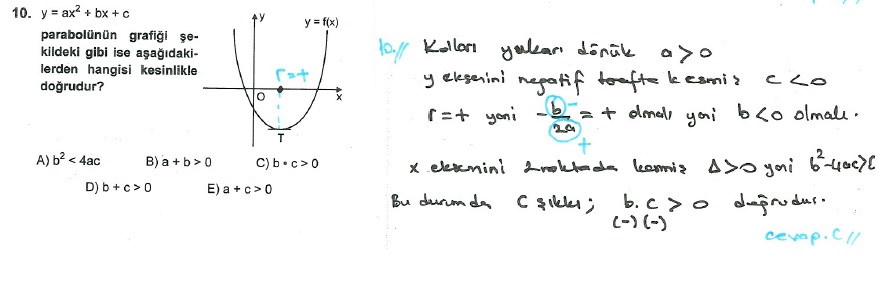 10. y = ax² + bx + c
parabolünün grafiği şe-
kildeki gibi ise aşağıdaki-
lerden hangisi kesinlikle
doğrudur?
y
y = f(x)
r=+
O
x
T
A) b² < 4ac
B) a + b > 0
C) b • c > 0
D) b + c > 0
E) a + c > 0
10.// Kolları yukarı dönük a>0
y eksenini negatif tarafta kesmiş c<0
r=+ yani -b/2a = + olmalı yani b<0 olmalı.
- +
x eksenini 2 noktada kesmiş Δ>0 yani b²-4ac>0
Bu durumda C şıkkı; b.c > 0 doğrudur.
(-)(-)
cevap.C//